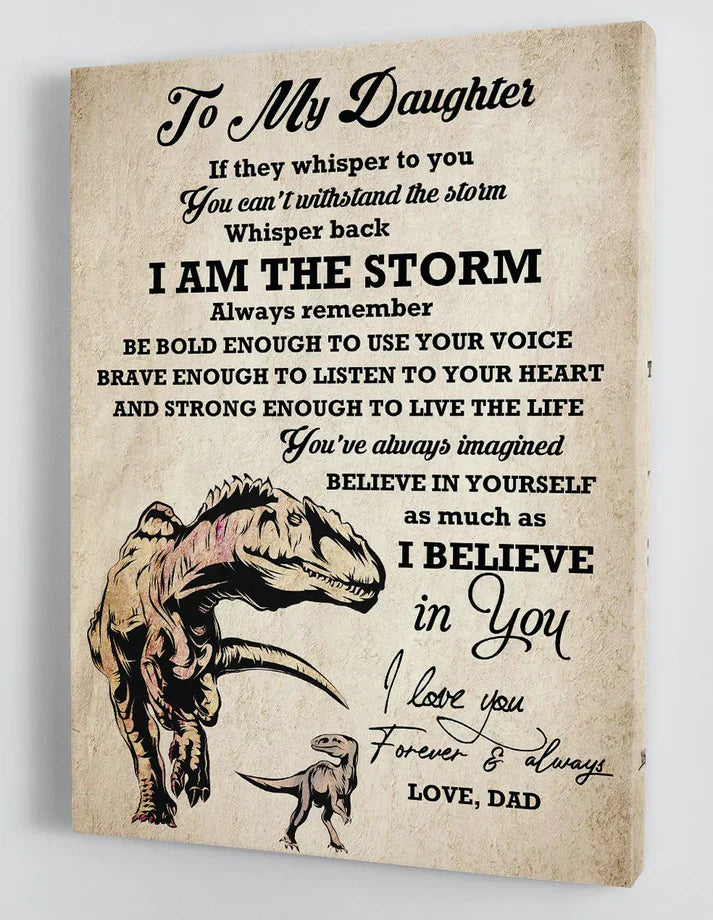 To My Daughter
If they whisper to you
You can't withstand the storm
Whisper back
I AM THE STORM
Always remember
BE BOLD ENOUGH TO USE YOUR VOICE
BRAVE ENOUGH TO LISTEN TO YOUR HEART
AND STRONG ENOUGH TO LIVE THE LIFE
You've always imagined
BELIEVE IN YOURSELF
as much as
I BELIEVE
in You
I love you
Forever & always
LOVE, DAD